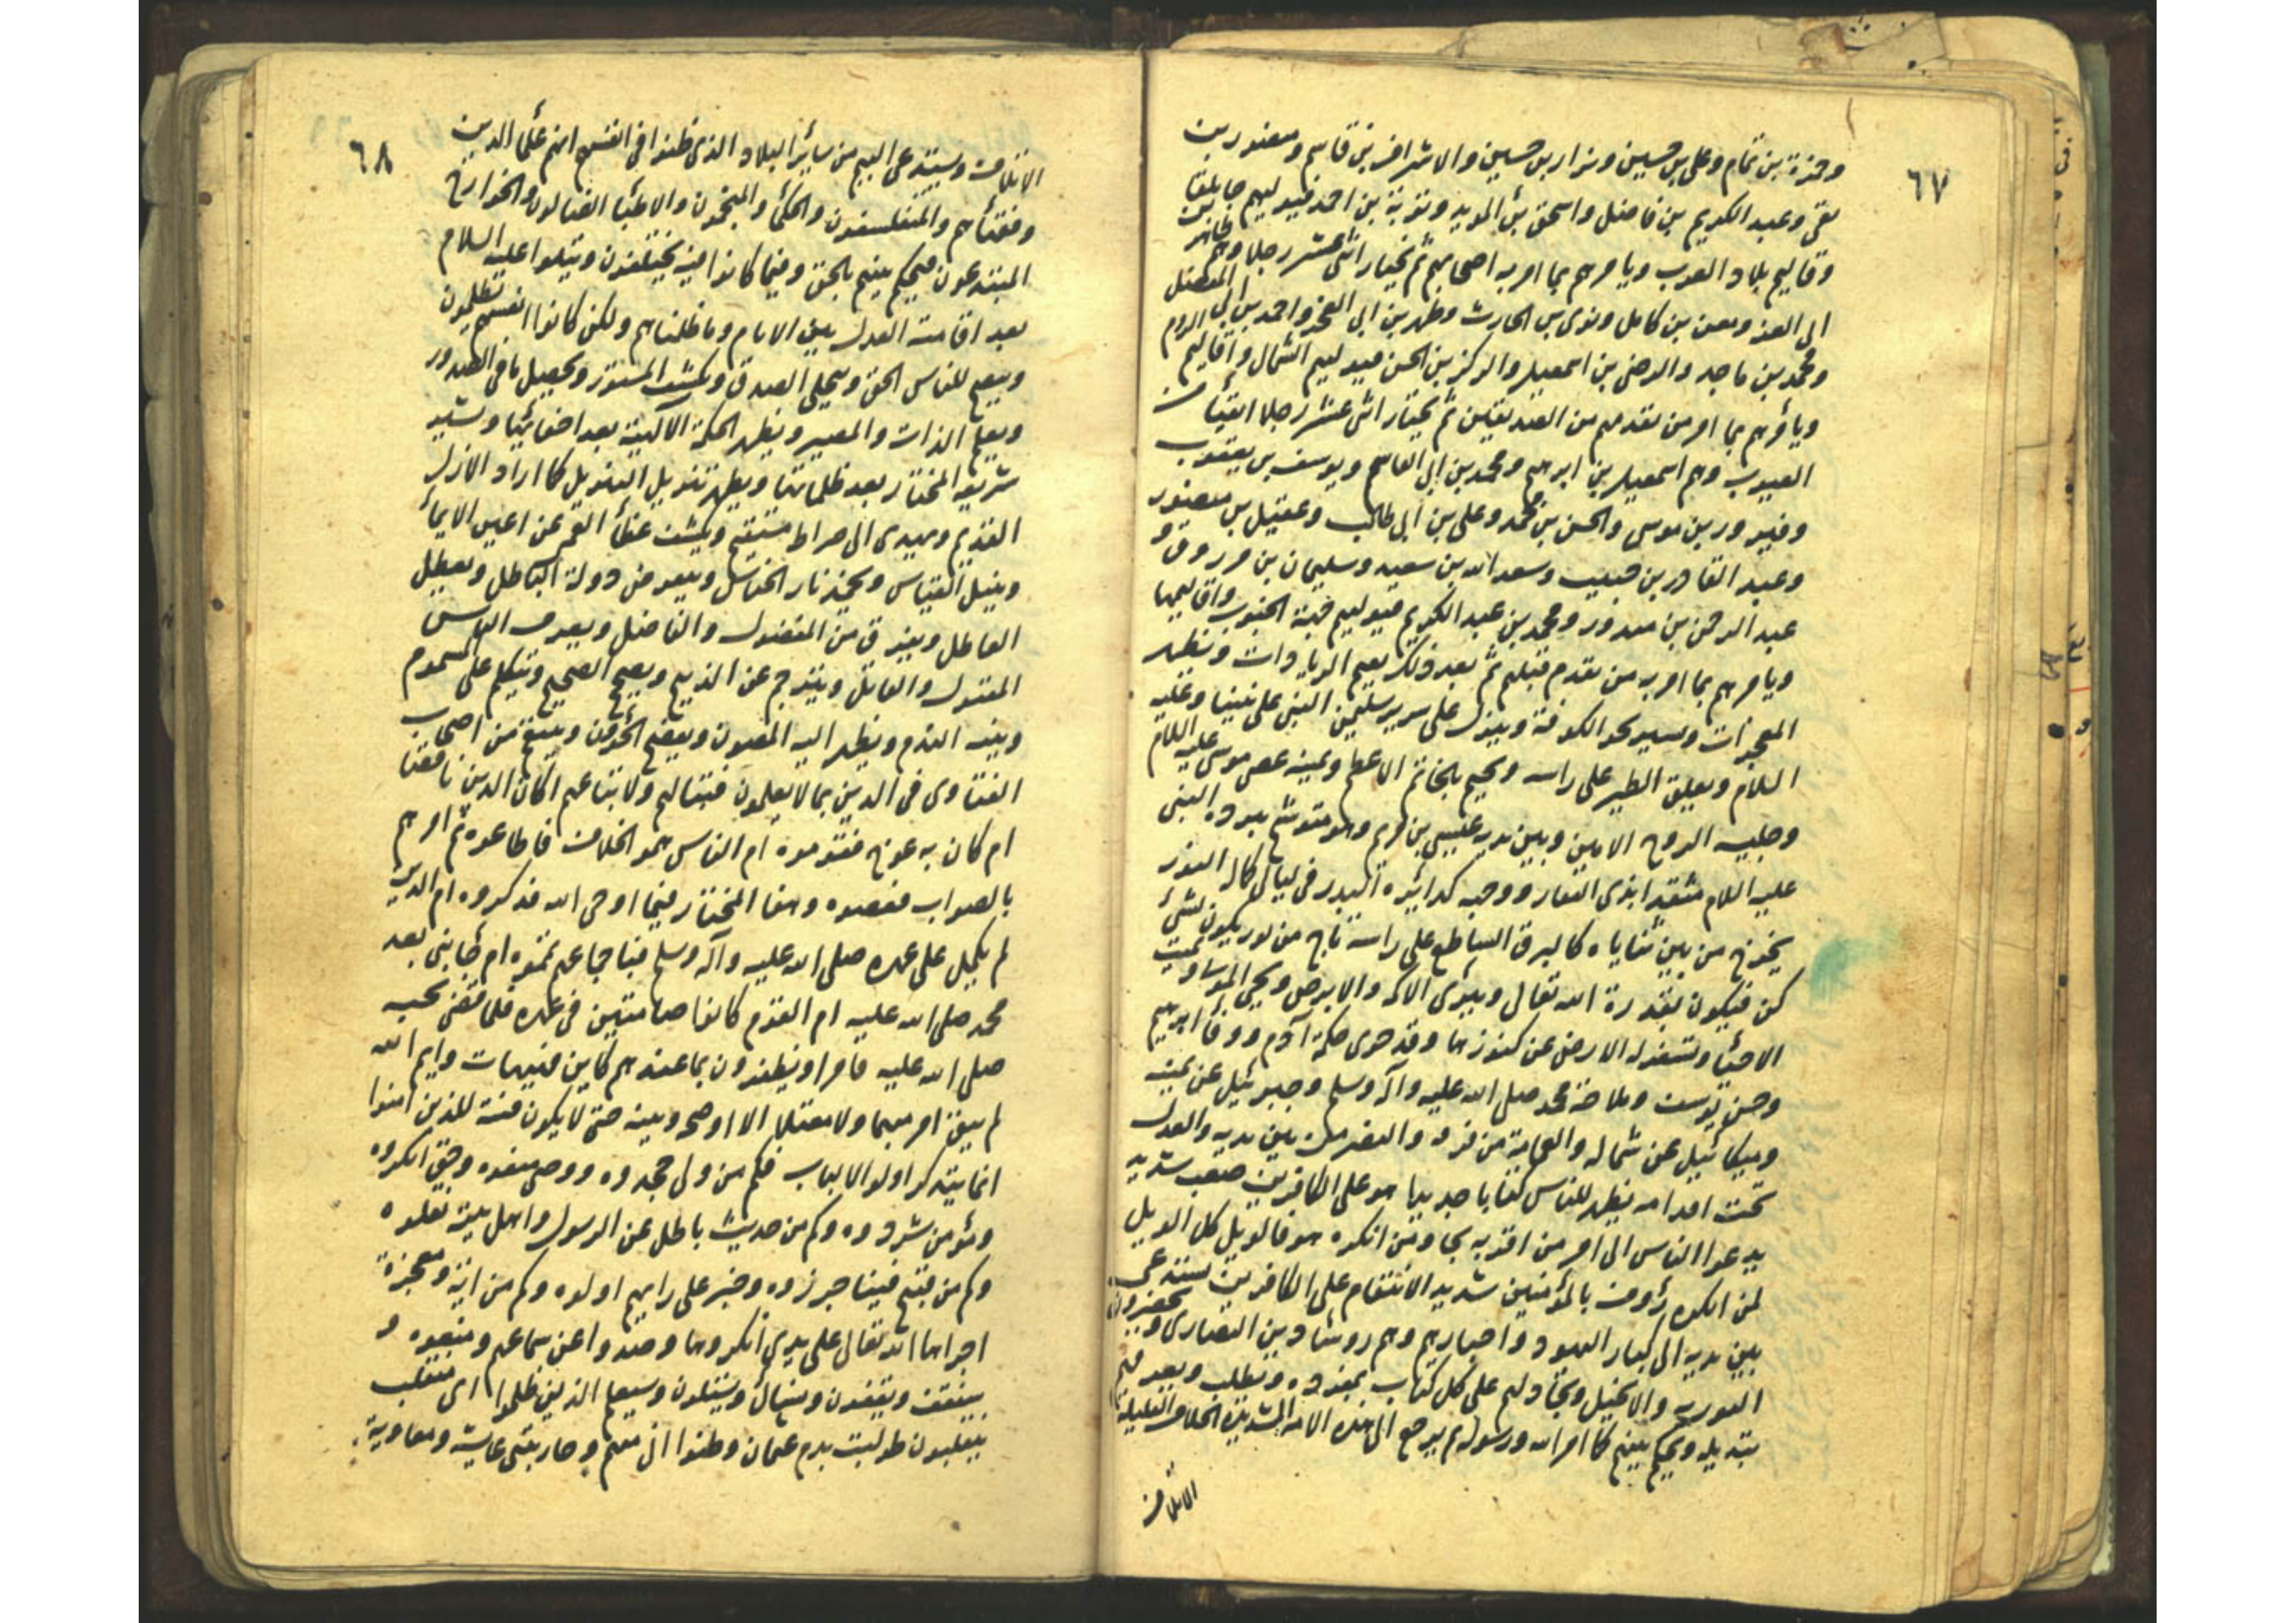 ٦٧
وحمزة بن تمام وعلى بن حسين ونزار بن حسين والاشراف بن قاسم ومنصور بن
تقى وعبد الكريم بن فاضل واسحق بن المويد وثوبة بن احمد فيوليهم جابلقا
وقاليم بلاد العرب ويامرهم بما امر به اصحابهم ثم يختار اثنى عشر رجلا وهم طاهر بن
ابى العز ومعن بن كامل ولوى بن الحارث ومطهر بن ابى الفتح واحمد بن ابى المفضل
ومحمد بن ماجد والرضى بن اسمعيل والركز بن الحسن فيوليهم الشمال واقاليم الروم
ويأمرهم بما امر من تقدمهم من الصديقين ثم يختار اثنى عشر رجلا اتقيا من
العيوب وهم اسمعيل بن ابرهيم ومحمد بن ابى القاسم ويوسف بن يعقوب
وفيرور بن موسى والحسن بن محمد وعلى بن ابى طالب وعقيل بن منصور
وعبد القادر بن حبيب وسعد الله بن سعيد وسليمان بن مرزوق و
عبد الرحمن بن منذور ومحمد بن عبد الكريم فيوليهم جهة الجنوب واقاليمها
ويامرهم بما امر به من تقدم قبلهم ثم بعد ذلك يقيم الرياوات وتظهر
المعجزات ويسير نحو الكوفة وينزل على سرير سليمن النبى على نبينا وعليه
السلام ويعلق الطير على راسه ويختم بالخاتم الاعظم وبيمينه عصى موسى عليه السلام
وجليسه الروح الامين وبين يديه عيسى بن مريم وهو متوشح ببرده النبى
عليه السلام متقدا بذى الفقار ووجهه كدائرة البدر فى ليالى كمال النور
يخرج من بين ثناياه كالبرق الساطع على راسه تاج من نور يقول لشئ
كن فيكون بقدرة الله تعالى ويبرئ الاكمه والابرص ويحيى الموتا ويميت
الاحيا وتسفر له الارض عن كنوزها وقد حوى حكمة آدم ووفا ابرهيم
وحسن يوسف وملاحة محمد صلى الله عليه وآله وسلم وجبرئيل عن يمينه
وميكائيل عن شماله والغمامة من فوقه والنصر من بين يديه والعدل
تحت اقدامه يظهر للناس كتابا جديدا هو على الكافرين صعب شديد
يدعوا الناس الى امر من اقر به نجا ومن انكره هو فالويل كل الويل
لمن انكره رؤوف بالمؤمنين شديد الانتقام على الكافرين يستدعى
بين يديه الى كبار اليهود واحبارهم وهم روسا دين النصارى ويحضرون
التورية والانجيل ويجادلهم على كل كتاب بمفرده ويطلب ويعرفهم
تبديله ويحكم بينهم كما امر الله ورسوله ثم يرجع الى هذه الامة الشديدة الخلاف القليلة
الائتلاف
٦٨
الائتلاف وسيدعى اليهم من سائر البلاد الذى ظنوا فى انفسهم انهم علما الدين
وفقهائهم والمتفلسفون والحكما والمنجمون والاطبا الضالون والخوارج
المبتدعون فيحكم بينهم بالحق وفيما كانوا فيه يختلفون ويتلوا عليه السلام
بعد اقامت العدل بين الانام وما ظلمناهم ولكن كانوا انفسهم يظلمون
ويتضح للناس الحق وينجلى الصدق ويكشف المستور ويحصيل ما فى الصدور
ويعلم الذات والمصير ويظهر الحكمة الالهية بعد اخفائها ويشيد
شريعة المختار بعد ظلماتها ويظهر تنويل التنويل كما اراد الازل
القديم ويهدى الى صراط مستقيم ويكشف غطأ الغم عن اعين الايمأ
ويبيل القياس ويخمد نار الخناس ويعرض دولة الباطل ويعطل
العاطل ويفرق من المفضول والفاضل ويعرف الناس
المقتول والقاتل ويترحم عن الذبيح ويصح الصحيح ويتكلم على المسموم
وينبه الندم ويظهر اليه المصون ويفضح الخوون وينتقم من اصحاب
الفتاوى فى الدين بما لا يعلمون فتبا لهم ولاتباعهم اكان الدين ناقصا
ام كان به عوج فقوموه ام الناس هموا بخلاف فاطاعوه ام امرهم
بالصواب فعصوه وهذا المختار فيما اوحى الله فذكروه ام الدين
لم يكمل على عهده صلى الله عليه وآله وسلم فبما جاعهم تمموه ام جا نبى بعد
محمد صلى الله عليه ام القوم كانوا صامتين فى عهده فلما قضى نحبه
صلى الله عليه قاموا ويظفرون بما عندهم كاين فهيهات وايم الله
لم يبق امر مبهما ولا مفصلا الا اوضحه وبينه حتى لا يكون فتنة للذين امنوا
انما يتذكر اولو الالباب فكم من ولى جحدوه ووصى ضيعوه وحق انكروه
ومؤمن شردوه وكم من حديث باطل عن الرسول واهل بيته نقلوه
وكم من قبيح فينا جوزوه وخبر على رايهم اولوه وكم من اية ومعجزة
اجراها الله تعالى على يدى انكروها وصدوا عن سماعهم ومنعوه و
سنقف ويقفون ونسال ويسئلون وسيعلم الذين ظلموا اى منقلب
ينقلبون طولبت بدم عثمان وظنوا انى منهم وحاربتنى عايشة ومعاوية